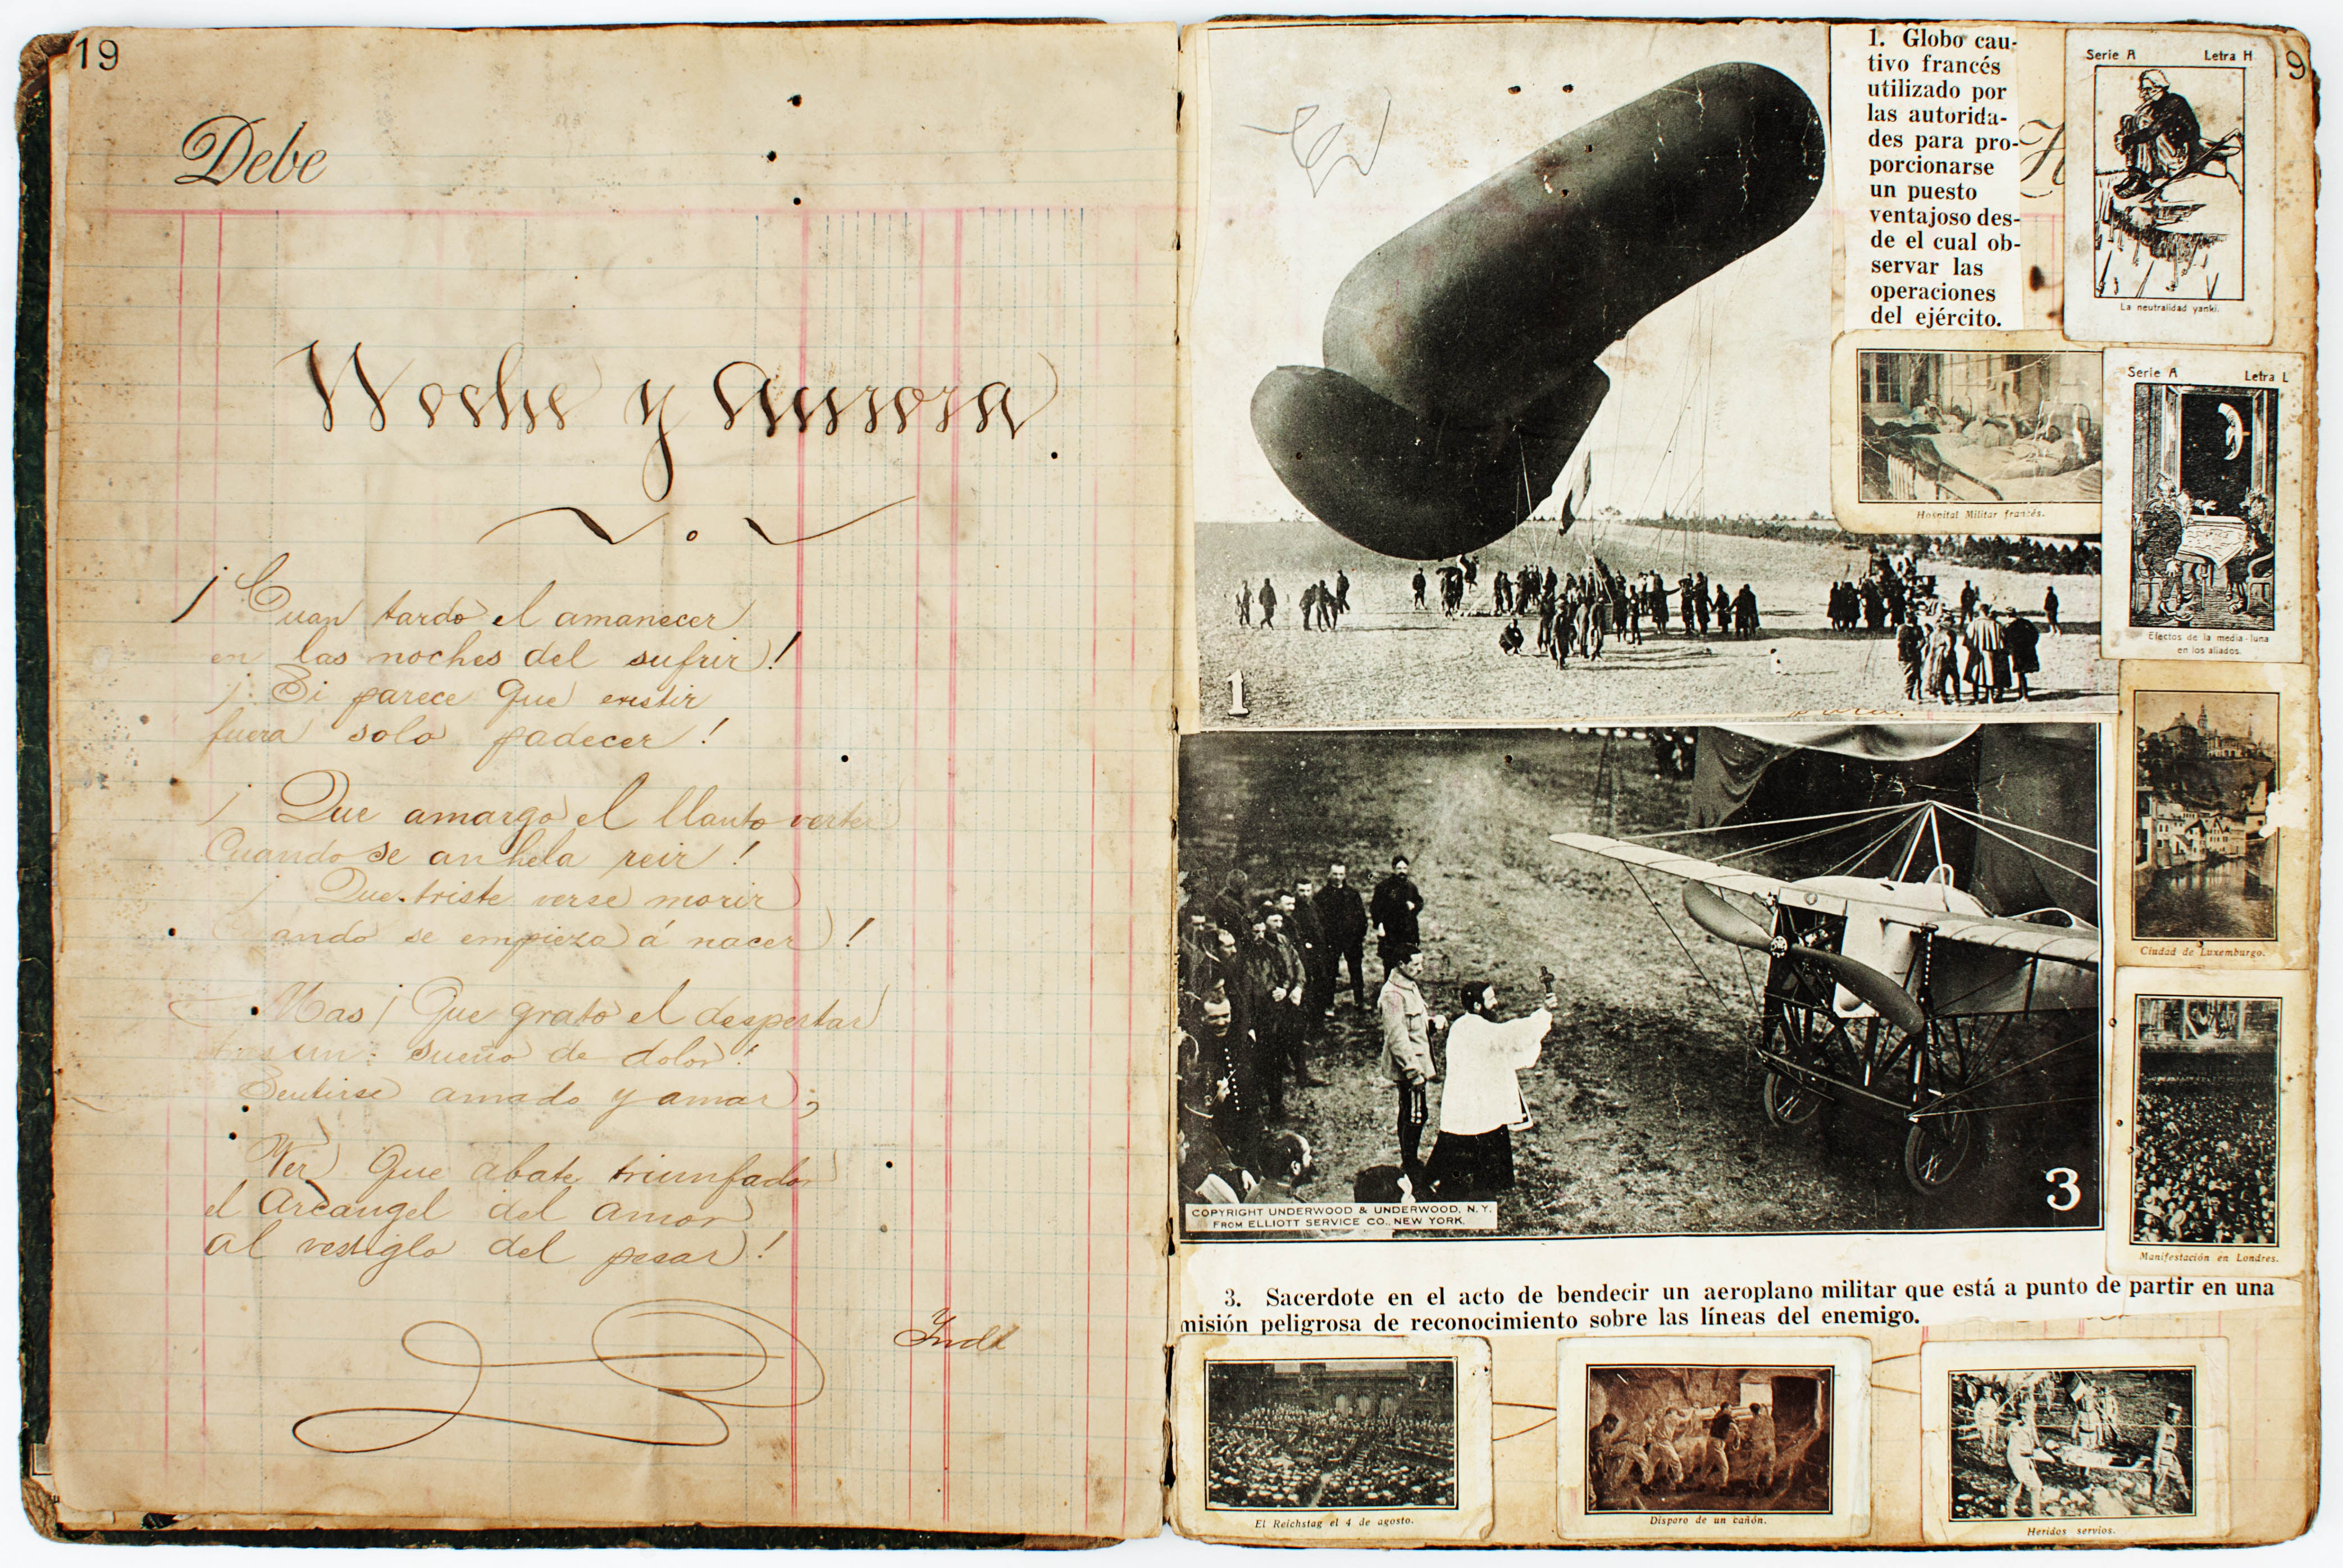 19
Debe
Noche y Aurora
¡Cuan tardo el amanecer
en las noches del sufrir!
¡Si parece que existir
fuera solo padecer!
¡Que amargo el llanto verter
Cuando se anhela reir!
¡Que triste verse morir
Cuando se empieza á nacer!
Mas ¡Que grato el despertar
tras un sueño de dolor!
Sentirse amado y amar;
Ver que abate triunfador
el Arcangel del amor
al vestiglo del pesar!
1. Globo cau-
tivo francés
utilizado por
las autorida-
des para pro-
porcionarse
un puesto
ventajoso des-
de el cual ob-
servar las
operaciones
del ejército.
H
9
Serie A Letra H
La neutralidad yanki.
Hospital Militar francés.
Serie A Letra L
Efectos de la media-luna
en los aliados.
1
Ciudad de Luxemburgo.
Manifestación en Londres.
3
COPYRIGHT UNDERWOOD & UNDERWOOD, N.Y.
FROM ELLIOTT SERVICE CO., NEW YORK.
3. Sacerdote en el acto de bendecir un aeroplano militar que está a punto de partir en una
misión peligrosa de reconocimiento sobre las líneas del enemigo.
El Reichstag el 4 de agosto.
Disparo de un cañón.
Heridos servios.